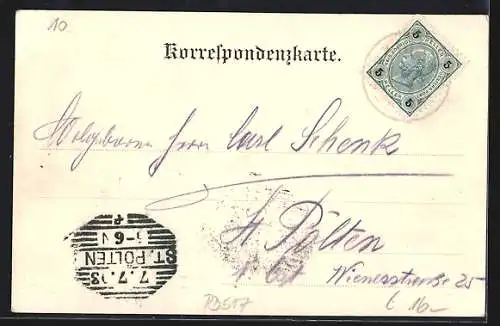 10
Korrespondenzkarte.
Wolgeboren Herrn Carl Schenk
St Pölten
Wienerstraße 25
ST. PÖLTEN
7.7.03
5-6 N
PB517
€ 16-